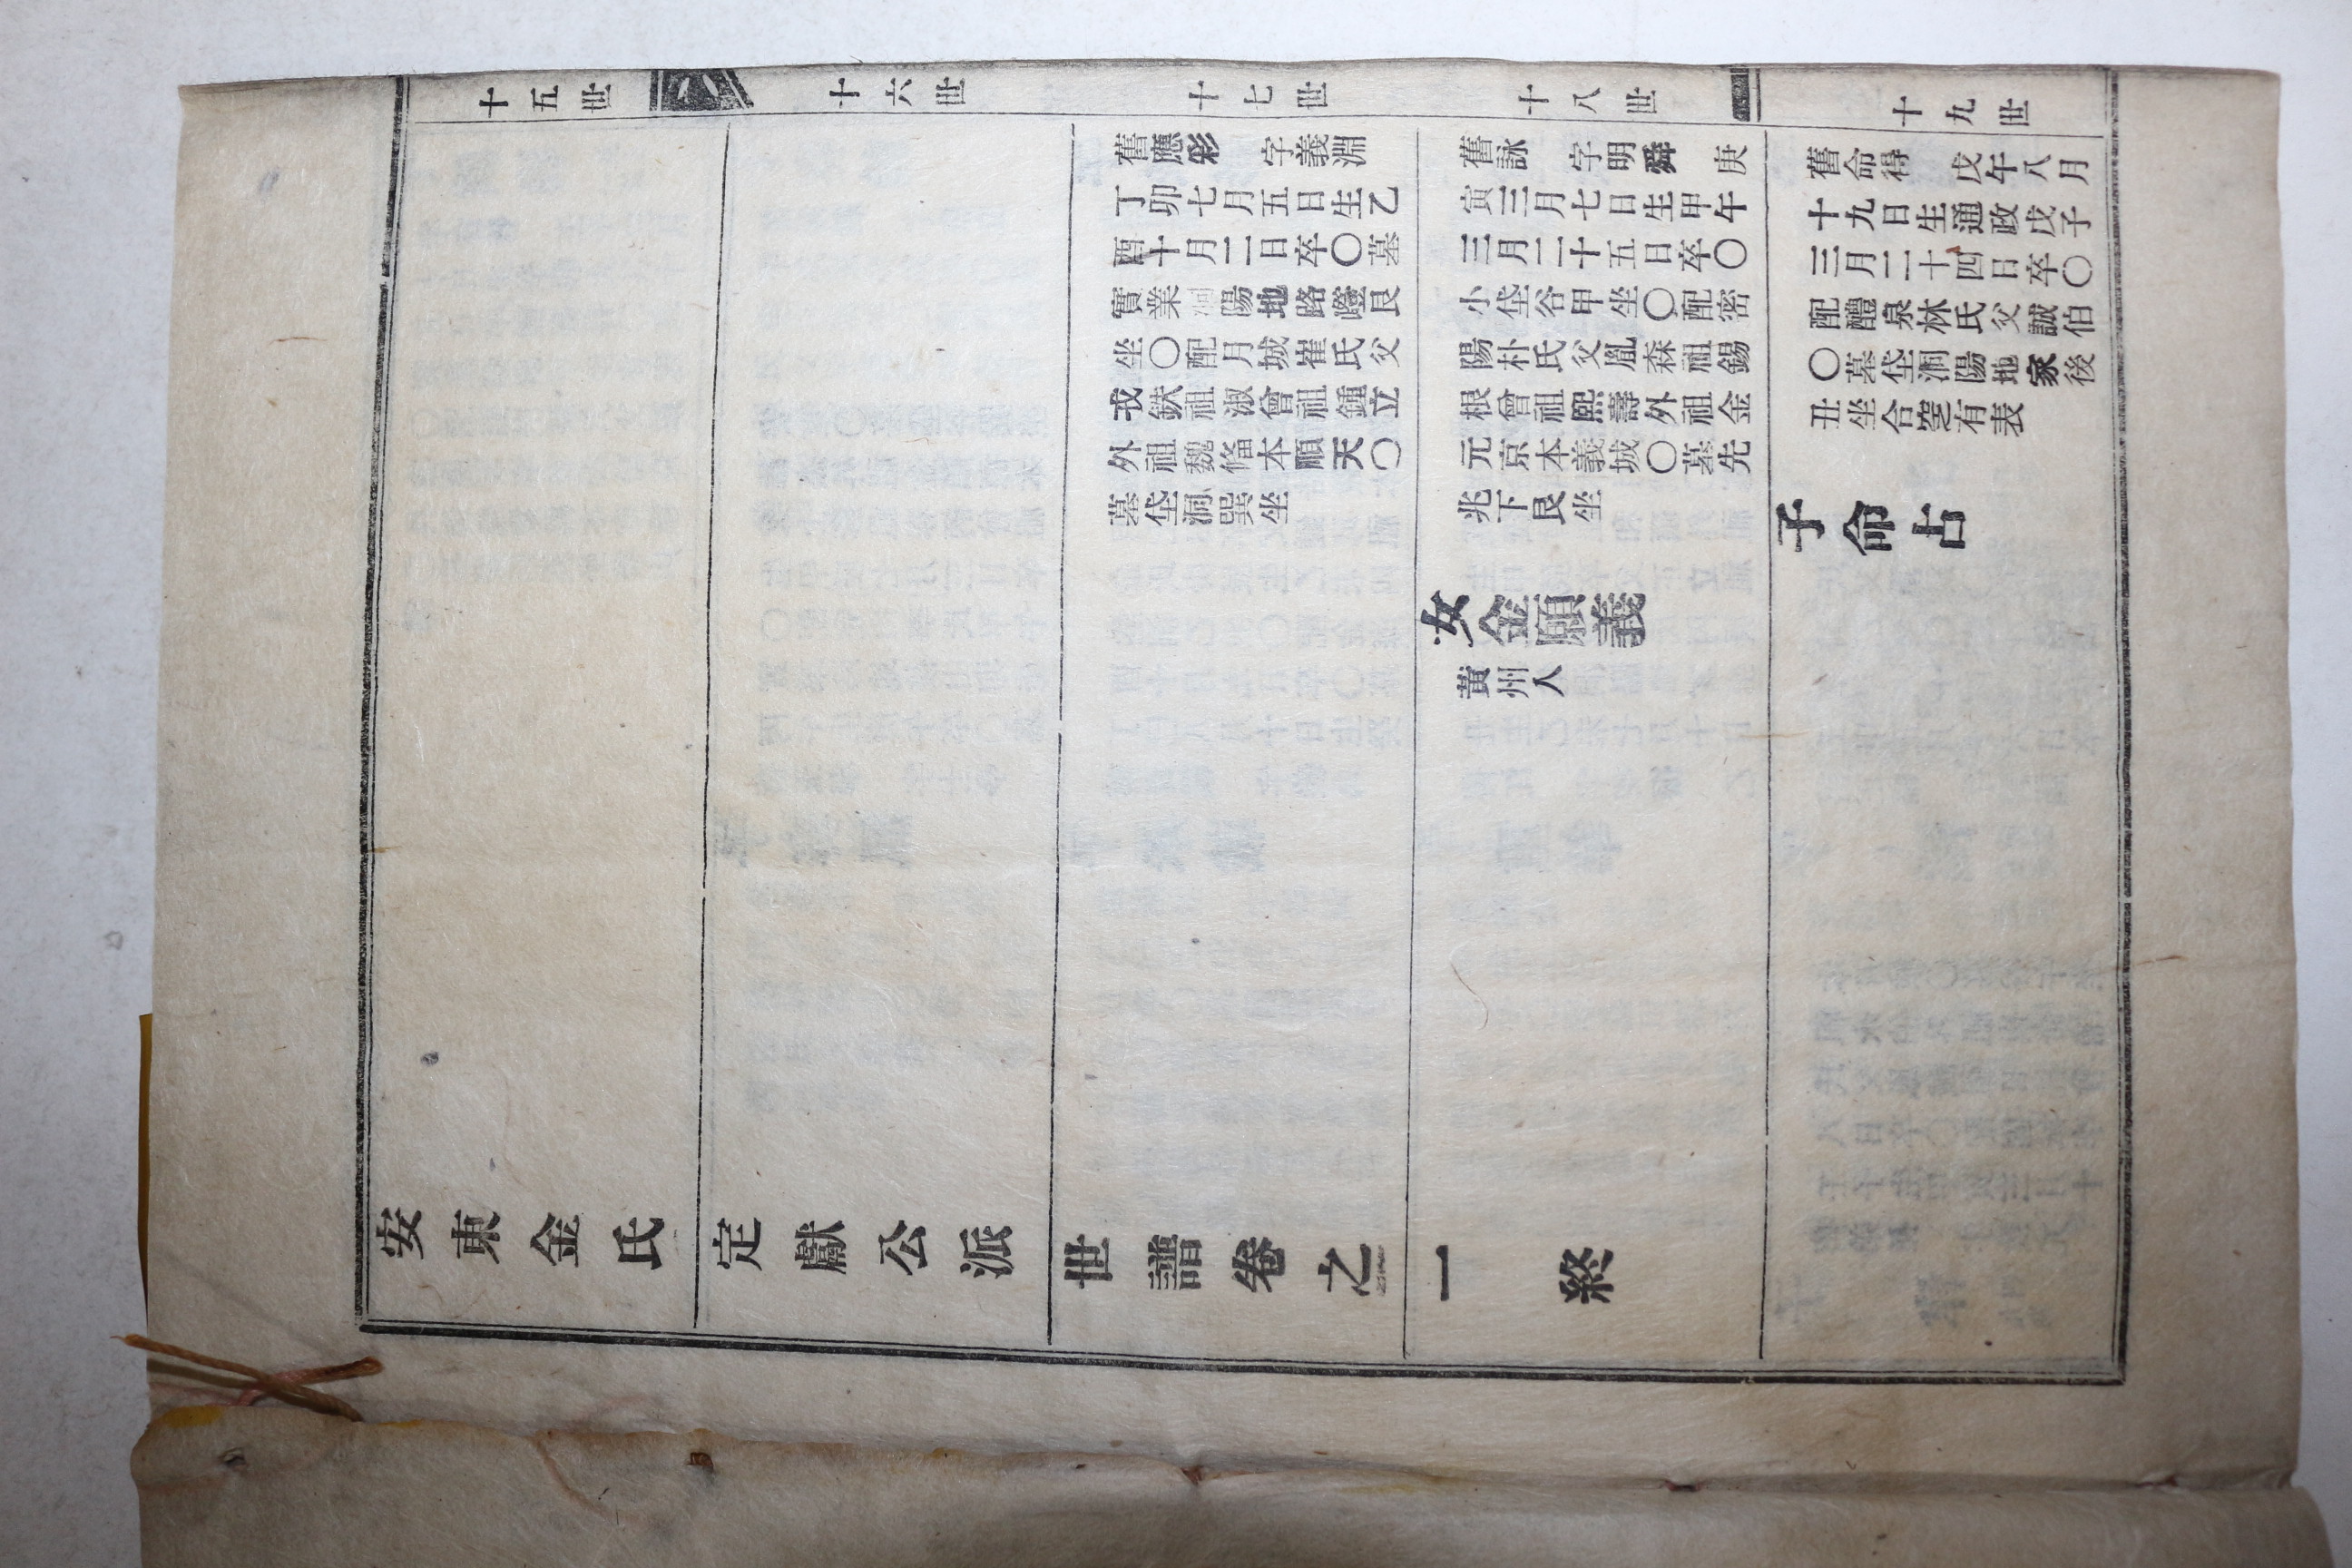 十五世
十六世
十七世
十八世
十九世
舊應彩 字義淵
丁卯七月五日生乙
酉十月二日卒〇墓
實業洞陽地路嶝艮
坐〇配月城崔氏父
戎鉄祖淑曾祖鍾立
外祖魏脩本順天〇
墓垈洞巽坐
舊詠 字明舜 庚
寅三月七日生甲午
三月二十五日卒〇
小垈谷甲坐〇配密
陽朴氏父胤森祖錫
根曾祖熙壽外祖金
元京本義城〇墓先
兆下艮坐
女金願義
黃州人
舊命得 戊午八月
十九日生通政戊子
三月二十四日卒〇
配醴泉林氏父誠伯
〇墓垈洞陽地家後
丑坐合窆有表
子命占
安東金氏定獻公派世譜卷之一 終